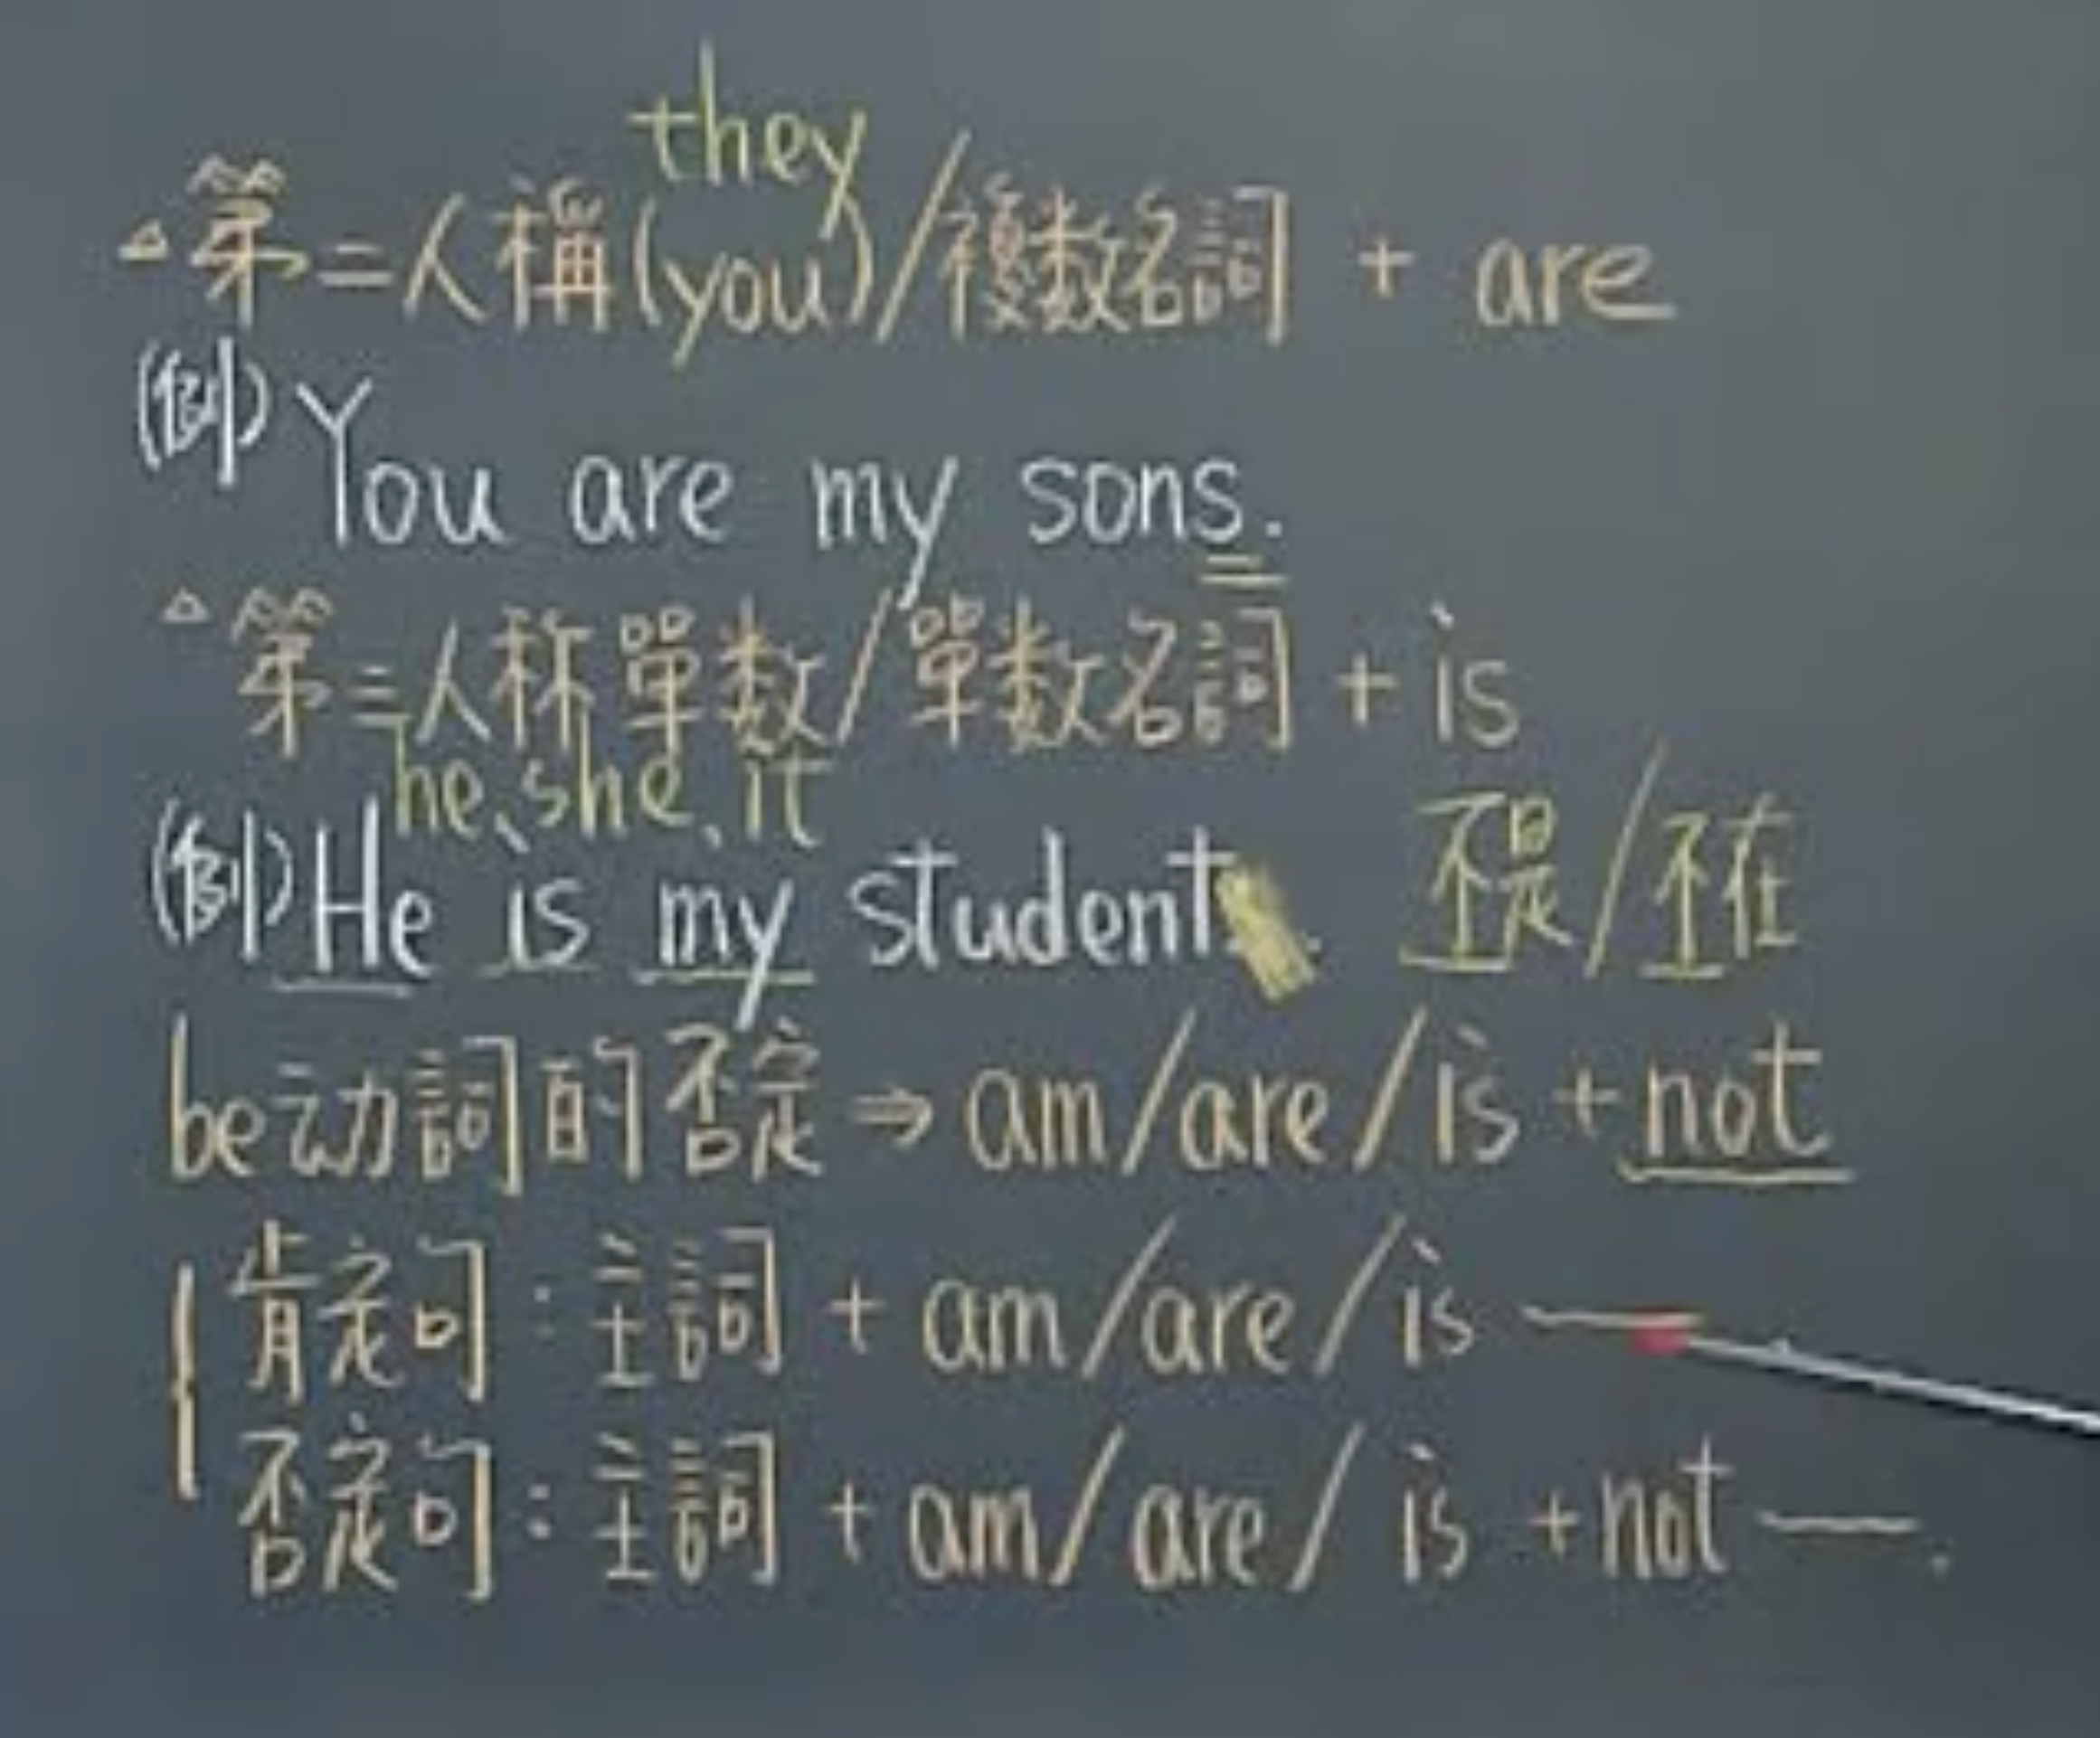 they
△第二人稱(you)/複数名詞 + are
(例) You are my sons.
△第三人称單数/單数名詞 + is
he、she、it
(例) He is my student. 不是/不在
be动詞的否定 ⇒ am/are/is + not
肯定句:主詞 + am/are/is —
否定句:主詞 + am/are/is + not —.